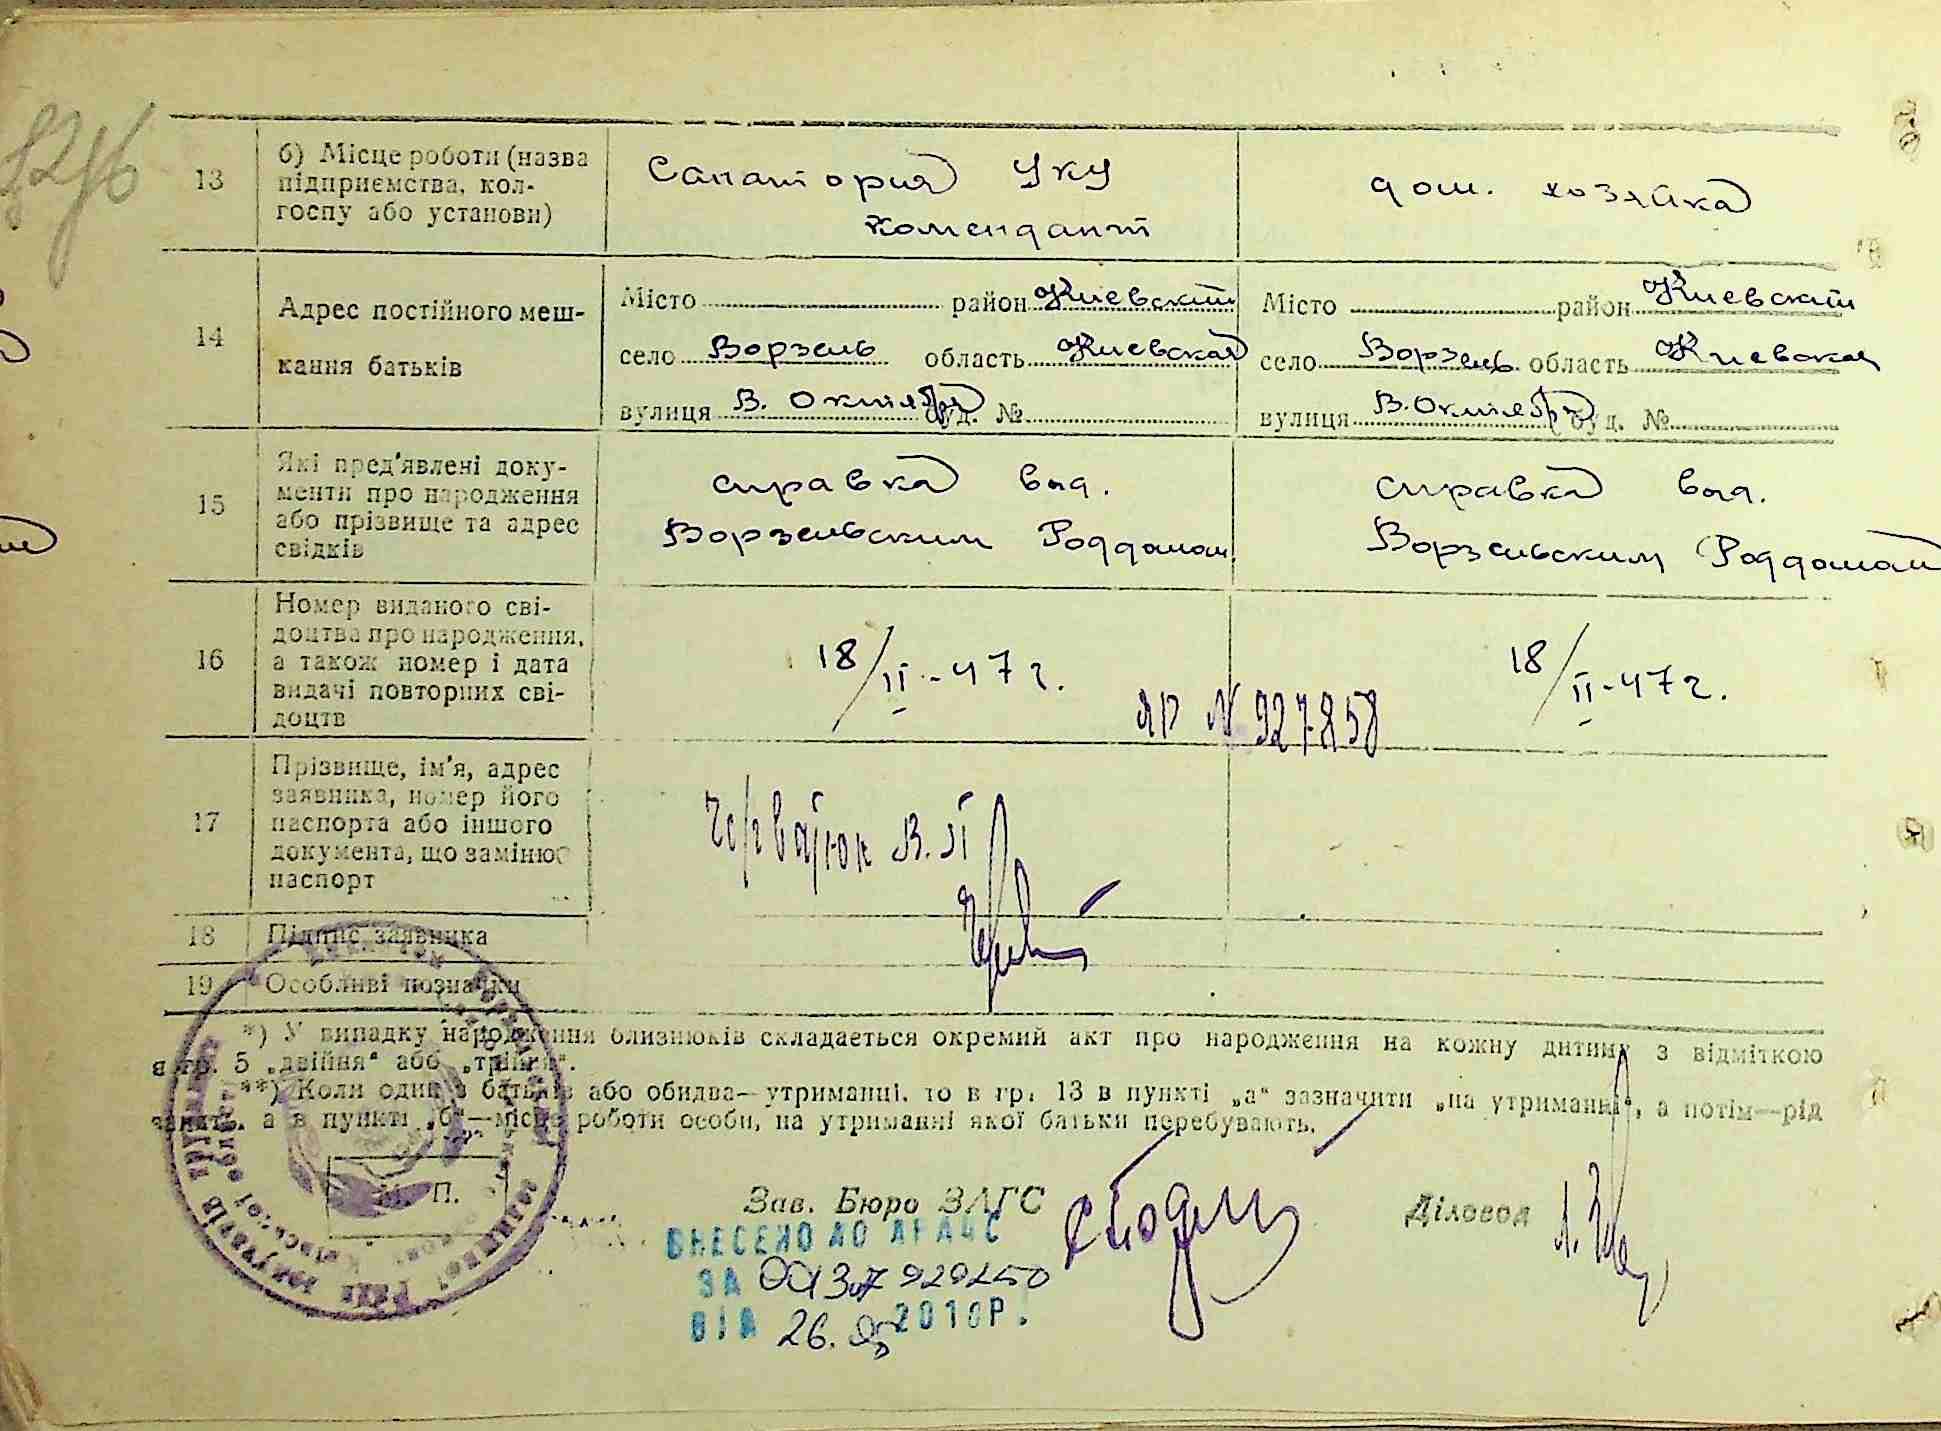 13
б) Місце роботи (назва
підприємства, кол-
госпу або установи)
Санатория УКУ
Комендант
дом. хозяйка
14
Адрес постійного меш-
кання батьків
Місто район Киевский
село Ворзель область Киевская
вулиця В. Октября буд. №
Місто район Киевский
село Ворзель область Киевская
вулиця В. Октября буд. №
15
Які пред'явлені доку-
менти про народження
або прізвище та адрес
свідків
справка выд.
Ворзельским Роддомом
справка выд.
Ворзельским Роддомом
16
Номер виданого сві-
доцтва про народження,
а також номер і дата
видачі повторних сві-
доцтв
18/II-47 г.
ЯР № 927858
18/II-47 г.
17
Прізвище, ім'я, адрес
заявника, номер його
паспорта або іншого
документа, що замінює
паспорт
В. П
18
Підпис заявника
19
Особливі познačки
*) У випадку народження близнюків складається окремий акт про народження на кожну дитину з відміткою
в гр. 5 „двійня“ або „трійня“.
**) Коли один з батьків або обидва—утриманці, то в гр. 13 в пункті „а“ зазначити „на утриманні“, а потім—рід
занять, а в пункті „б“—місце роботи особи, на утриманні якої батьки перебувають.
М. П.
Зав. Бюро ЗАГС
Діловод
ВНЕСЕНО ДО ДРАЦС
ЗА
ВІД 26. 2010Р.